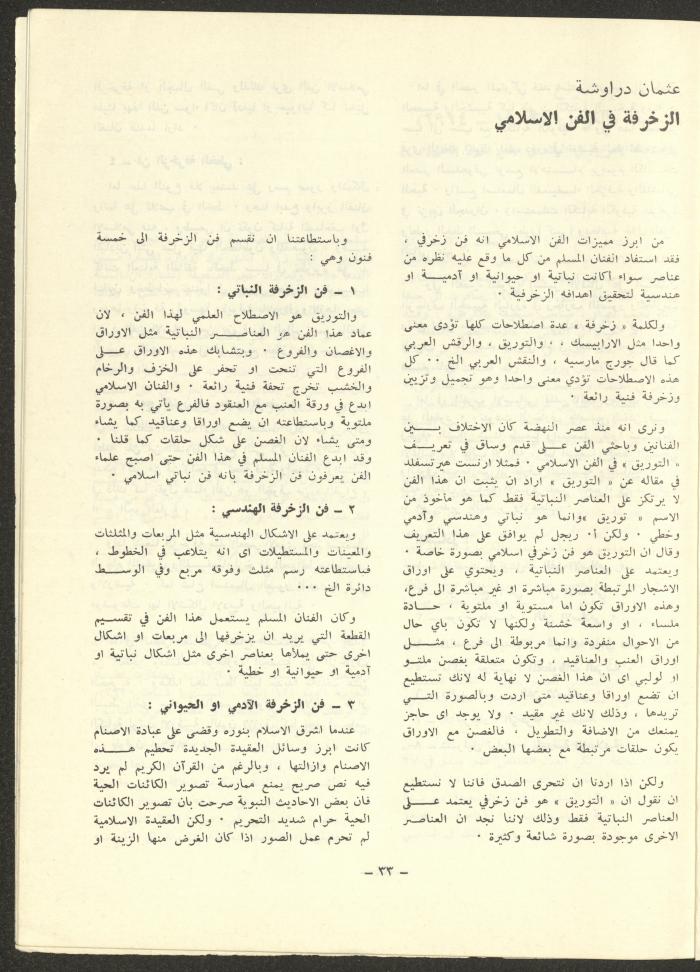 عثمان دراوشة
الزخرفة في الفن الاسلامي
من ابرز مميزات الفن الاسلامي انه فن زخرفي ،
فقد استفاد الفنان المسلم من كل ما وقع عليه نظره من
عناصر سواء أكانت نباتية او حيوانية او آدميــة او
هندسية لتحقيق اهدافه الزخرفية ٠
ولكلمة « زخرفة » عدة اصطلاحات كلها تؤدى معنى
واحدا مثل الارابيسك ، ٠ والتوريق ، والرقش العربي
كما قال جورج مارسيه ، والنقش العربي الخ ٠٠ كل
هذه الاصطلاحات تؤدي معنى واحدا وهو تجميل وتزيين
وزخرفة فنية رائعة ٠
ونرى انه منذ عصر النهضة كان الاختلاف بـــين
الفنانين وباحثي الفن عـــلى قدم وساق في تعريـــف
« التوريق » في الفن الاسلامي ٠ فمثلا ارنست هيرتسفلد
في مقاله عن « التوريق » اراد ان يثبت ان هذا الفن
لا يرتكز على العناصر النباتية فقط كما هو مأخوذ من
الاسم « توريق »وانما هو نباتي وهندسي وآدمي
وخطي ٠ ولكن أ٠ ريجل لم يوافق على هذا التعريف
وقال ان التوريق هو فن زخرفي اسلامي بصورة خاصة ٠
ويعتمد على العناصر النباتية ، ويحتوي على اوراق
الاشجار المرتبطة بصورة مباشرة او غير مباشرة الى فرع،
وهذه الاوراق تكون اما مستوية او ملتوية ، حــادة
ملساء ، او واسعة خشنة ولكنها لا تكون باي حال
من الاحوال منفردة وانما مربوطة الى فرع ، مثـــل
اوراق العنب والعناقيد ، وتكون متعلقة بغصن ملتــو
او لولبي اى ان هذا الغصن لا نهاية له لانك تستطيع
ان تضع اوراقا وعناقيد متى اردت وبالصورة التـــي
تريدها ، وذلك لانك غير مقيد ٠ ولا يوجد اى حاجز
يمنعك من الاضافة والتطويل ، فالغصن مع الاوراق
يكون حلقات مرتبطة مع بعضها البعض ٠
ولكن اذا اردنا ان نتحرى الصدق فاننا لا نستطيع
ان نقول ان « التوريق » هو فن زخرفي يعتمد عـــلى
العناصر النباتية فقط وذلك لاننا نجد ان العناصـر
الاخرى موجودة بصورة شائعة وكثيرة ٠
وباستطاعتنا ان نقسم فن الزخرفة الى خمسة
فنون وهي :
١ ــ فن الزخرفة النباتي :
والتوريق هو الاصطلاح العلمي لهذا الفن ، لان
عماد هذا الفن هو العناصـــر النباتية مثل الاوراق
والاغصان والفروع ٠ وبتشابك هذه الاوراق عـــلى
الفروع التي تنحت او تحفر على الخزف والرخام
والخشب تخرج تحفة فنية رائعة ٠ والفنان الاسلامي
ابدع في ورقة العنب مع العنقود فالفرع يأتي به بصورة
ملتوية وباستطاعته ان يضع اوراقا وعناقيد كما يشاء
ومتى يشاء لان الغصن على شكل حلقات كما قلنا ٠
وقد ابدع الفنان المسلم في هذا الفن حتى اصبح علماء
الفن يعرفون فن الزخرفة بانه فن نباتي اسلامي ٠
٢ ــ فن الزخرفة الهندسي :
ويعتمد على الاشكال الهندسية مثل المربعات والمثلثات
والمعينات والمستطيلات اى انه يتلاعب في الخطوط ،
فباستطاعته رسم مثلث وفوقه مربع وفي الوســط
دائرة الخ ٠٠٠
وكان الفنان المسلم يستعمل هذا الفن في تقسـيم
القطعة التي يريد ان يزخرفها الى مربعات او اشكال
اخرى حتى يملأها بعناصر اخرى مثل اشكال نباتية او
آدمية او حيوانية او خطية ٠
٣ ــ فن الزخرفة الآدمي او الحيواني :
عندما اشرق الاسلام بنوره وقضى على عبادة الاصنام
كانت ابرز وسائل العقيدة الجديدة تحطيم هـــذه
الاصنام وازالتها ، وبالرغم من القرآن الكريم لم يرد
فيه نص صريح يمنع ممارسة تصوير الكائنات الحية
فان بعض الاحاديث النبوية صرحت بان تصوير الكائنات
الحية حرام شديد التحريم ٠ ولكن العقيدة الاسلامية
لم تحرم عمل الصور اذا كان الغرض منها الزينة او
ــ ٣٣ ــ